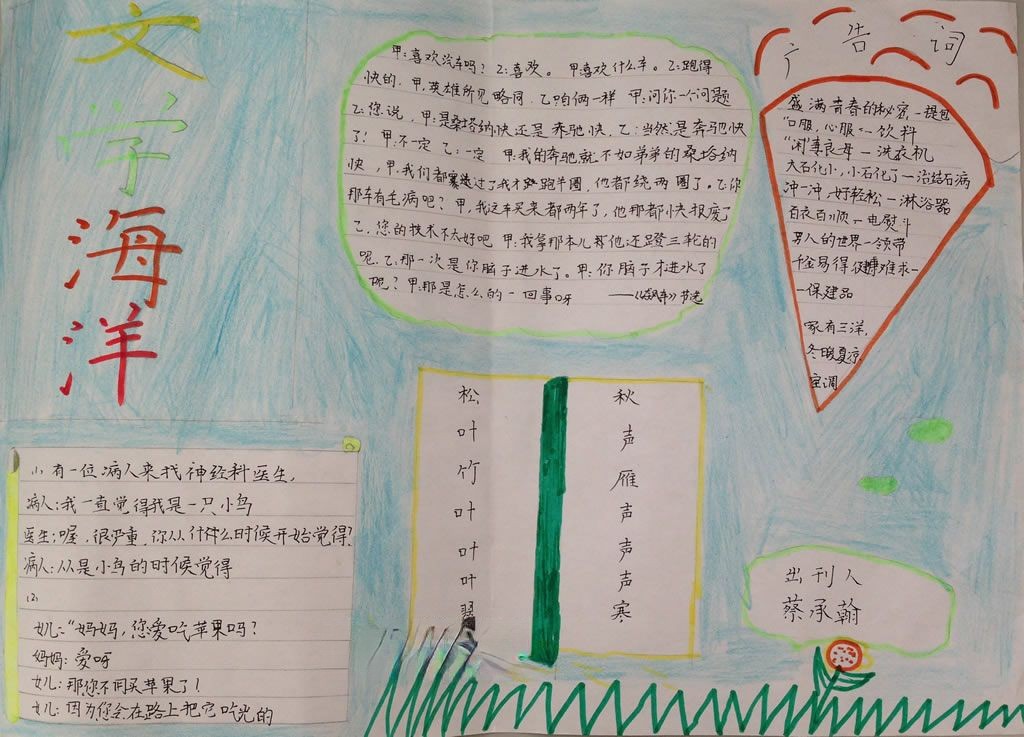 文学海洋
甲:喜欢汽车吗? 乙:喜欢。 甲喜欢什么车。乙:跑得
快的. 甲,英雄所见略同. 乙咱俩一样 甲:问你一个问题
乙:您说,甲:是桑塔纳快还是奔驰快,乙:当然是奔驰快
了! 甲不一定 乙:一定 甲:我的奔驰就不如弟弟的桑塔纳
快,甲:我们都赛过了我才跑半圈,他都绕两圈了。乙:你
那车有毛病吧? 甲,我这车买来都两年了,他那都快报废了
乙,您的技术不太好吧 甲:我拿那本儿那他还蹬三轮的
呢.乙:那一次是你脑子进水了。甲:你脑子才进水了
呢? 甲:那是怎么的一回事呀 ——《飙车》节选
广告词
盛满青春的秘密,一提包
“口服,心服”一饮料
“闲”妻良母一洗衣机
大石化小,小石化了一治结石病
冲一冲,好轻松一淋浴器
百衣百顺一电熨斗
男人的世界一领带
千金易得难求一
一保建品
家有三洋,
冬暖夏凉
空调
松叶竹叶叶叶翠
秋声雁声声声寒
(1)有一位病人来找神经科医生,
病人:我一直觉得我是一只小鸟
医生:喔,很严重,你从什么时候开始觉得?
病人:从是小鸟的时候觉得
(2)
女儿:“妈妈,您爱吃苹果吗?
妈妈:爱呀
女儿:那你不用买苹果了!
女儿:因为您会在路上把它吃光的
出刊人
蔡承翰